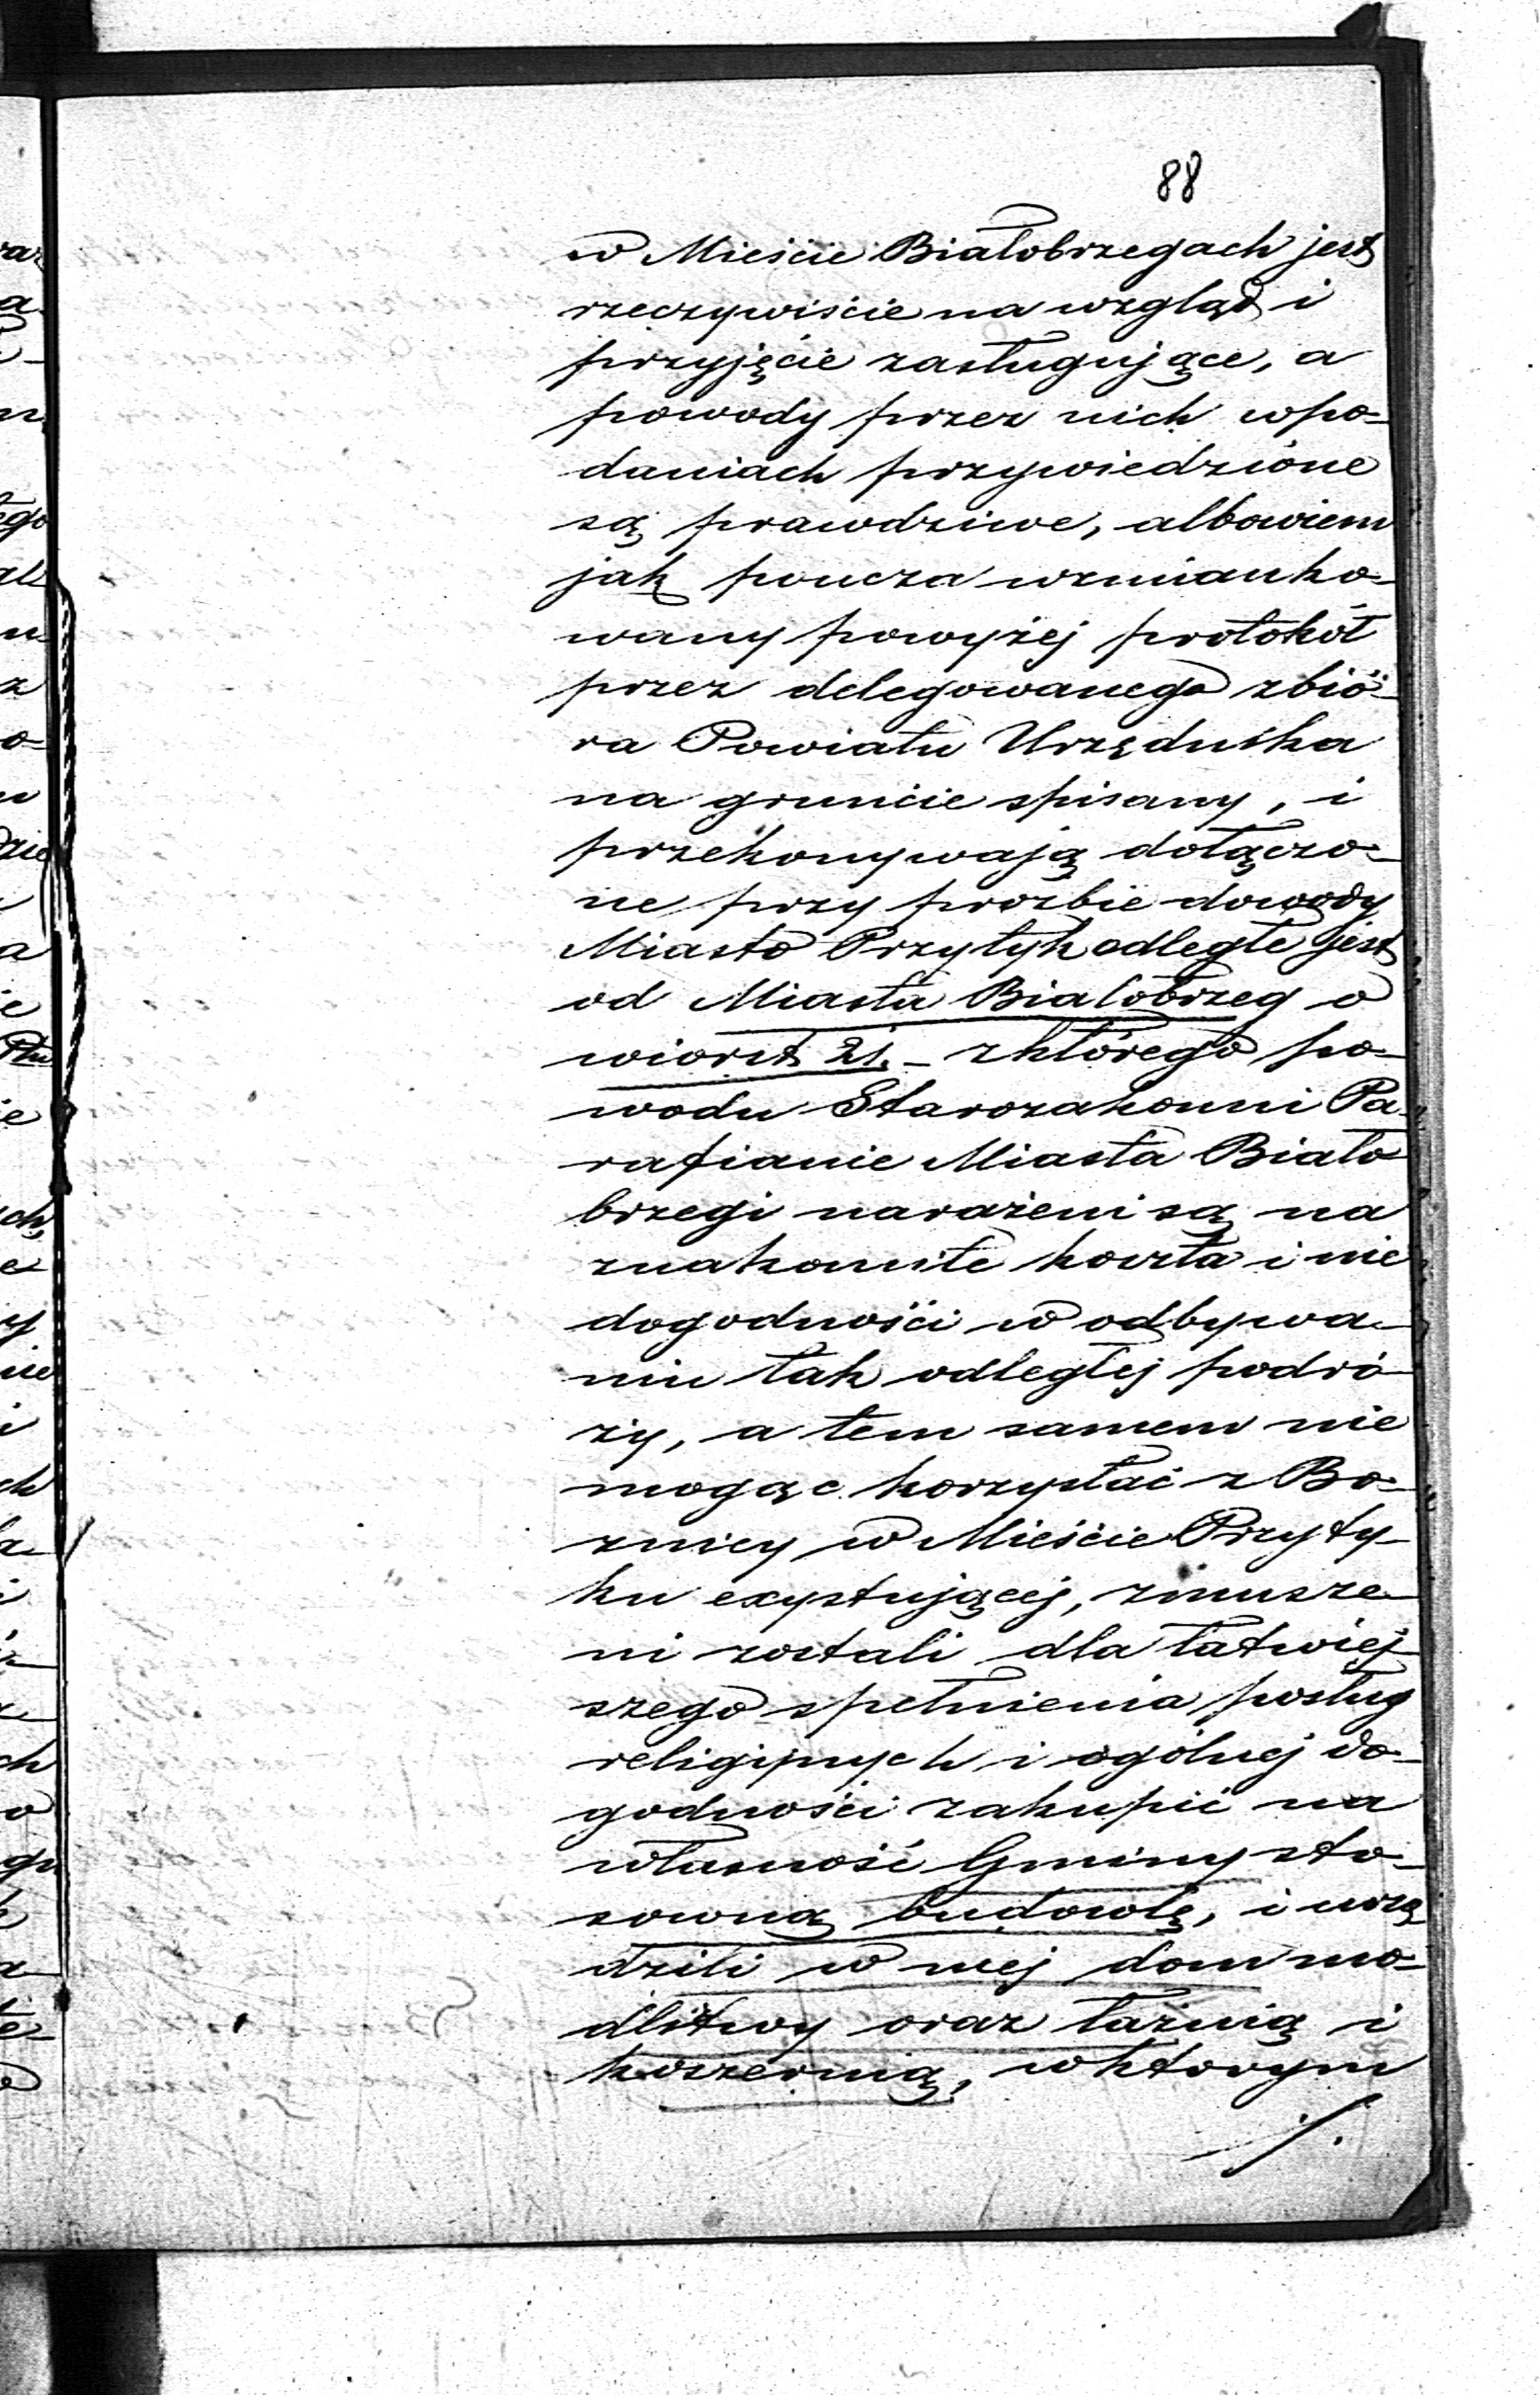 88
w Mieście Białobrzegach jest
rzeczywiście na wzgląd i
przyjęcie zasługujące, a
powody przez nich wpo-
daniach przywiedzione
są prawdziwe, albowiem
jak poucza wzmianko-
wany powyżej protokół
przez delegowanego zbió-
ra Powiatu Urzędnika
na gruncie spisany, i
przekonywają dołączo-
ne przy prozbie dowody
Miasto Przytyk odległe jest
od Miasta Białobrzeg o
wiorst 21. – zktórego po-
wodu Starozakonni Pa-
rafianie Miasta Biało
brzegi narażeni są na
znakomite koszta i nie
dogodności w odbywa-
niu tak odległej podró
ży, a tem samem nie
mogąc korzystać z Bo-
żnicy w Mieście Przyty-
ku exystującej, zmusze-
ni zostali dla łatwiej
szego spełnienia posług
religijnych i ogólnej do-
godności zakupić na
własność Gminy sto-
sowną budowlę, i urzą
dzili w niej dom mo-
dlitwy oraz łaźnią i
koszernią, wktórym
./.